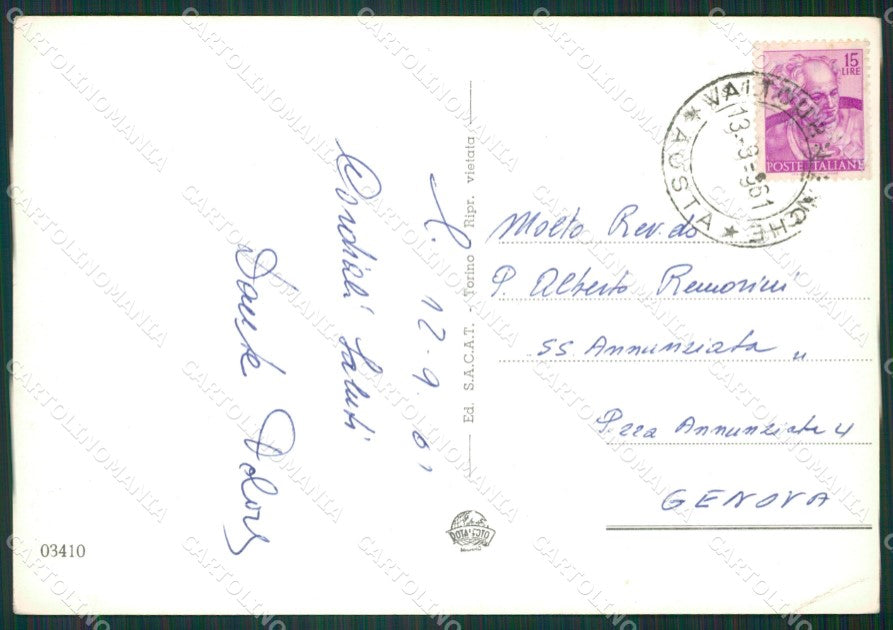 15
LIRE
POSTE ITALIANE
AOSTA
13-9-961
Ed. S.A.C.A.T. - Torino Ripr. vietata
12.9.61
Cordiali Saluti
Molto Rev.do
P. Alberto Remorini
"SS. Annunziata"
P.zza Annunziata 4
GENOVA
ROTALFOTO
03410
CARTOLINOMANIA